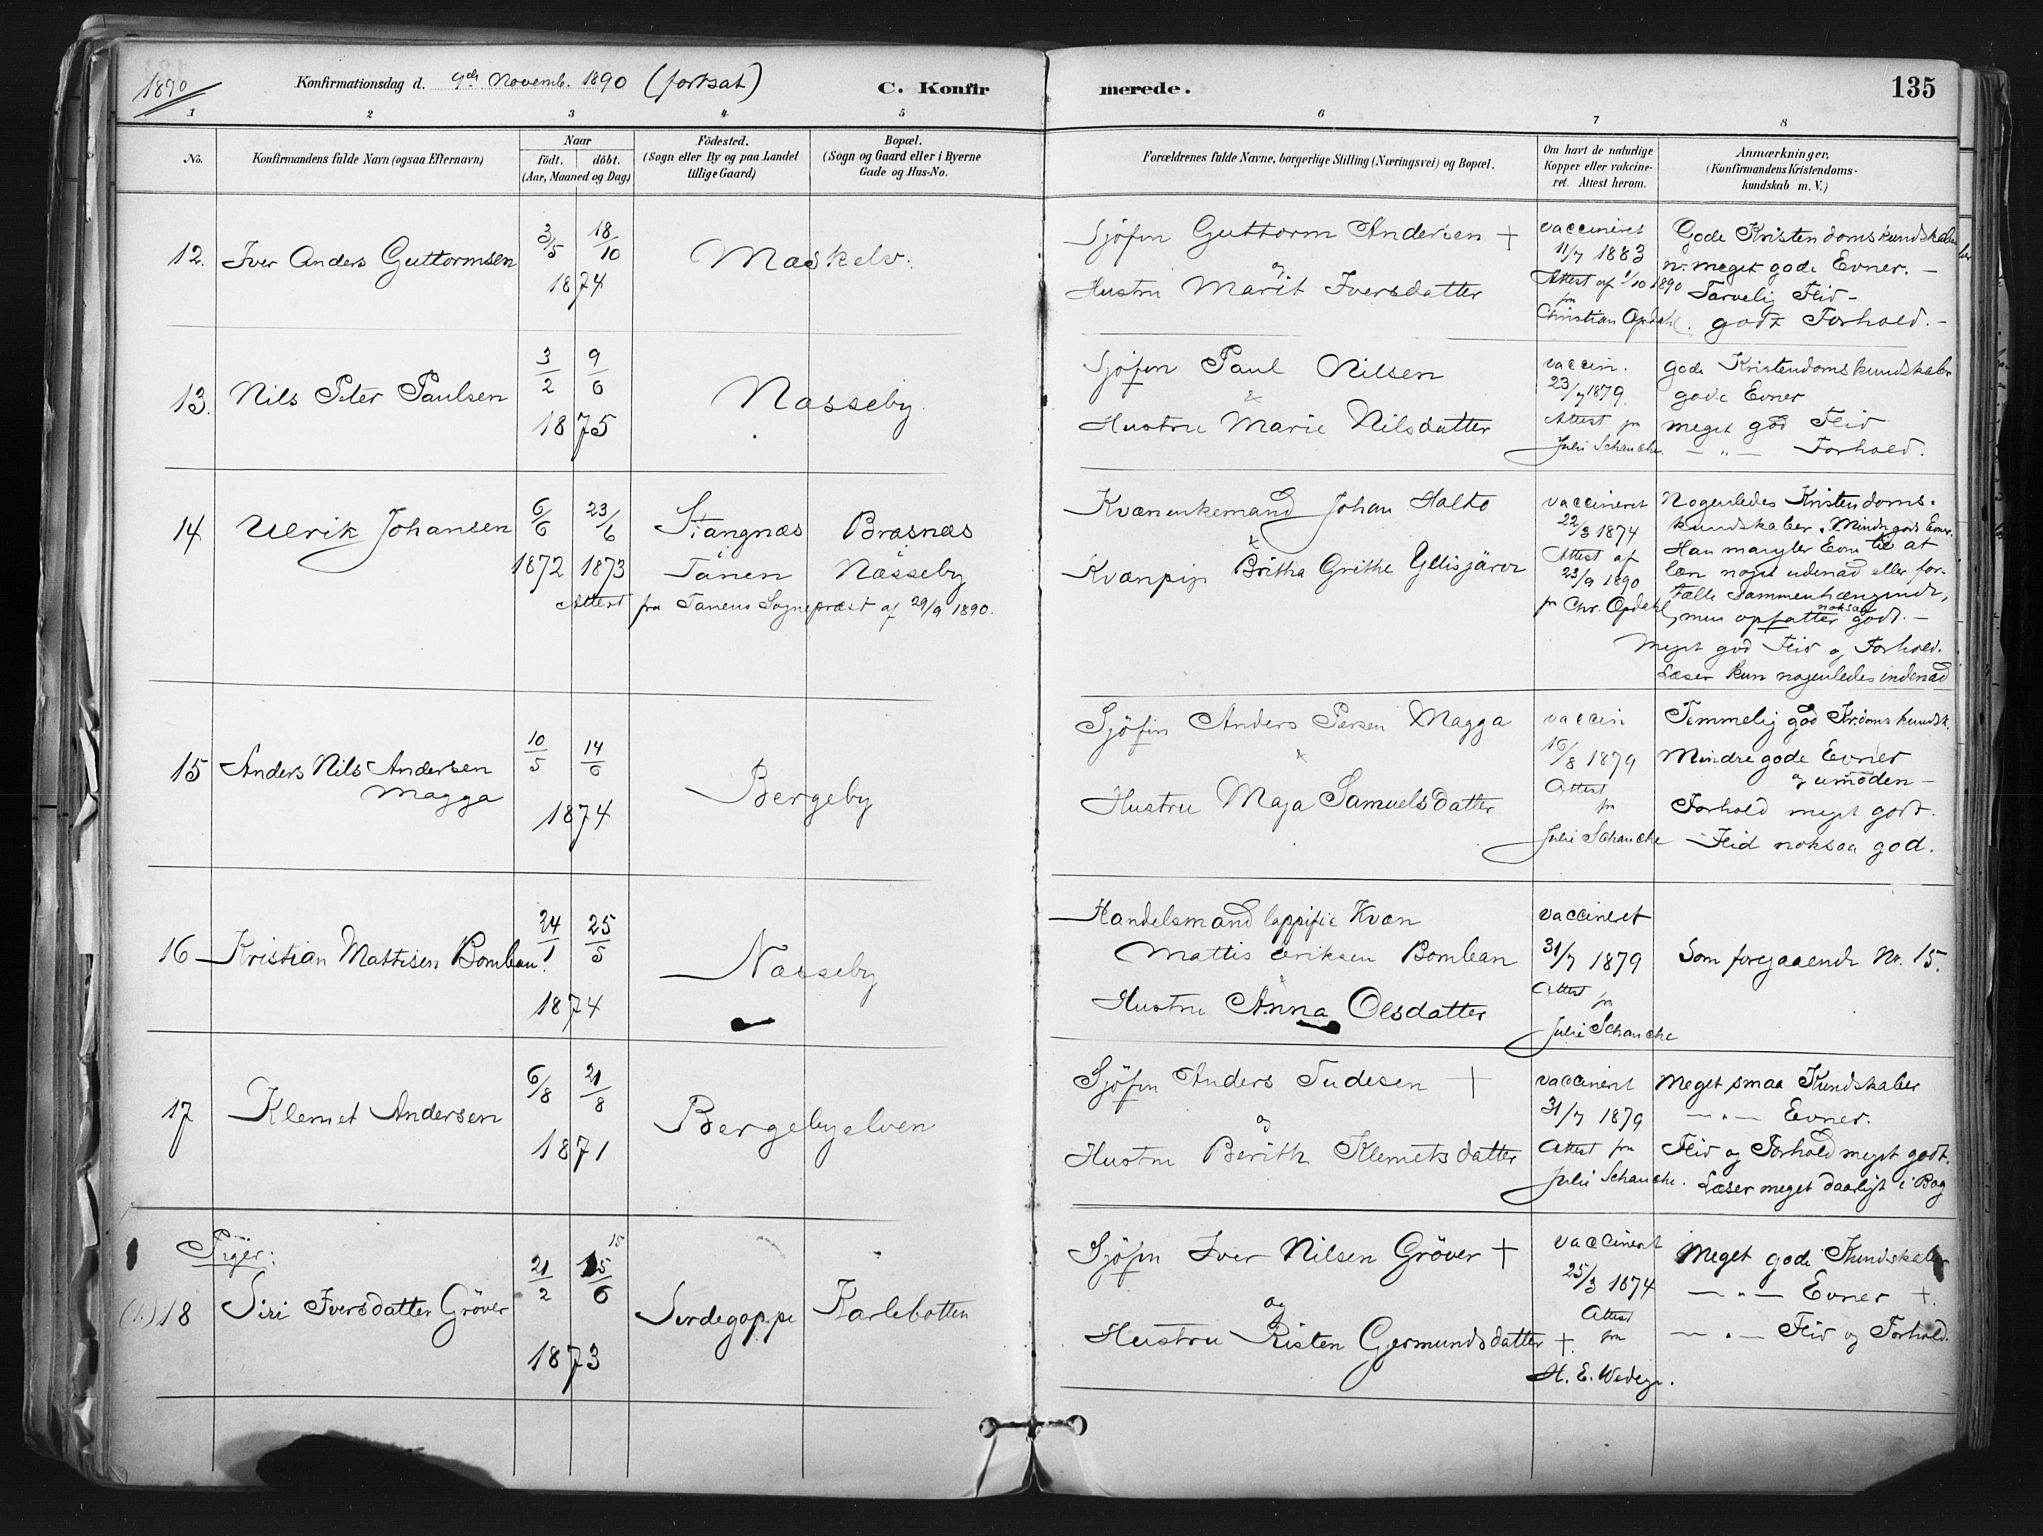 1890
Konfirmationsdag d. 9de Novemb. 1890 (fortsat)
C. Konfir
merede.
135
1 2 3 4 5 6 7 8
No.
Konfirmandens fulde Navn (ogsaa Efternavn)
Naar
födt. döbt.
(Aar, Maaned og Dag)
Födested.
(Sogn eller By og paa Landet
tillige Gaard)
Bopæl.
(Sogn og Gaard eller i Byerne
Gade og Hus-No.
Forældrenes fulde Navne, borgerlige Stilling (Næringsvei) og Bopæl.
Om havt de naturlige
Kopper eller vakcine-
ret. Attest herom.
Anmærkninger.
(Konfirmandens Kristendoms-
kundskab m. V.)
12. Iver Anders Guttormsen
3/5 18/10
1874
Mæskelv.
Sjöfin Guttorm Andersen +
og
Hustru Marit Iversdatter
vaccineret
11/7 1883
Attest af 1/10 1890
fra
Christian Opdahl.
Gode Kristendomskundskaber
meget gode Evner. –
Tarvelig Flid –
godt Forhold. –
13. Nils Peter Paulsen
3/2 9/6
1875
Næsseby.
Sjöfin Paul Nilsen
&
Hustru Marie Nilsdatter
vaccin.
23/7 1879.
Attest fra
Julie Schanche.
gode Kristendomskundskaber
gode Evner
meget god Flid
— „ — Forhold.
14 Ulrik Johansen
6/6 23/6
1872 1873
Stangnæs Bræsnæs
Tanen Næsseby
Attest fra Tanens Sognepræst af 29/9 1890.
Kvænenkemand Johan Halto
&
Kvænpige Britha Grithe Yllisjärvi
vaccineret
22/3 1874
Attest af
23/9 1890
fr Chr. Opdahl
Nogenledes Kristendoms-
kundskaber. Mindre gode Evner.
Han mangler Evne til at
læse noget udenad eller for-
tælle sammenhængende,
men opfatter noksaa godt. –
Meget god Flid og Forhold.
Læser kun nogenledes indenad
15 Anders Nils Andersen
Magga
10/5 14/6
1874
Bergeby
Sjöfin Anders Persen Magga
&
Hustru Maja Samuelsdatter
vaccin
16/8 1879
Attest
fra
Julie Schanche
Temmelig god Kr.doms kundsk.
Mindre gode Evner
og umoden –
Forhold meget godt.
– Flid noksaa god.
16 Kristian Mattisen Bomban.
24/1 25/5
1874
Næsseby
Handelsmand lappific Kvæn
Mattis Eriksen Bomban
Hustru Anna Olsdatter
vaccineret
31/7 1879
Attest
fra
Julie Schanche
Som foregaaende No. 15.
17 Klemet Andersen
6/8 21/8
1871
Bergebyelven
Sjöfin Anders Tudesen +
og
Hustru Berith Klemetsdatter
vaccineret
31/7 1879
Attest fra
Julie Schanche.
Meget smaa Kundskaber
— „ — Evner.
Flid og Forhold meget godt.
Læser meget daarligt i Bog
Piger:
(1.) 18 Siri Iversdatter Gröver
21/2 15/6 15
1873
Seidegoppe Karlebotten
Sjöfin Iver Nilsen Gröver +
og
Hustru Risten Gjermundsdatter +.
vaccineret
25/3 1874
Attest
fra
H. E. Wedege.
Meget gode Kundskaber
— „ — Evner +.
— „ — Flid og Forhold.